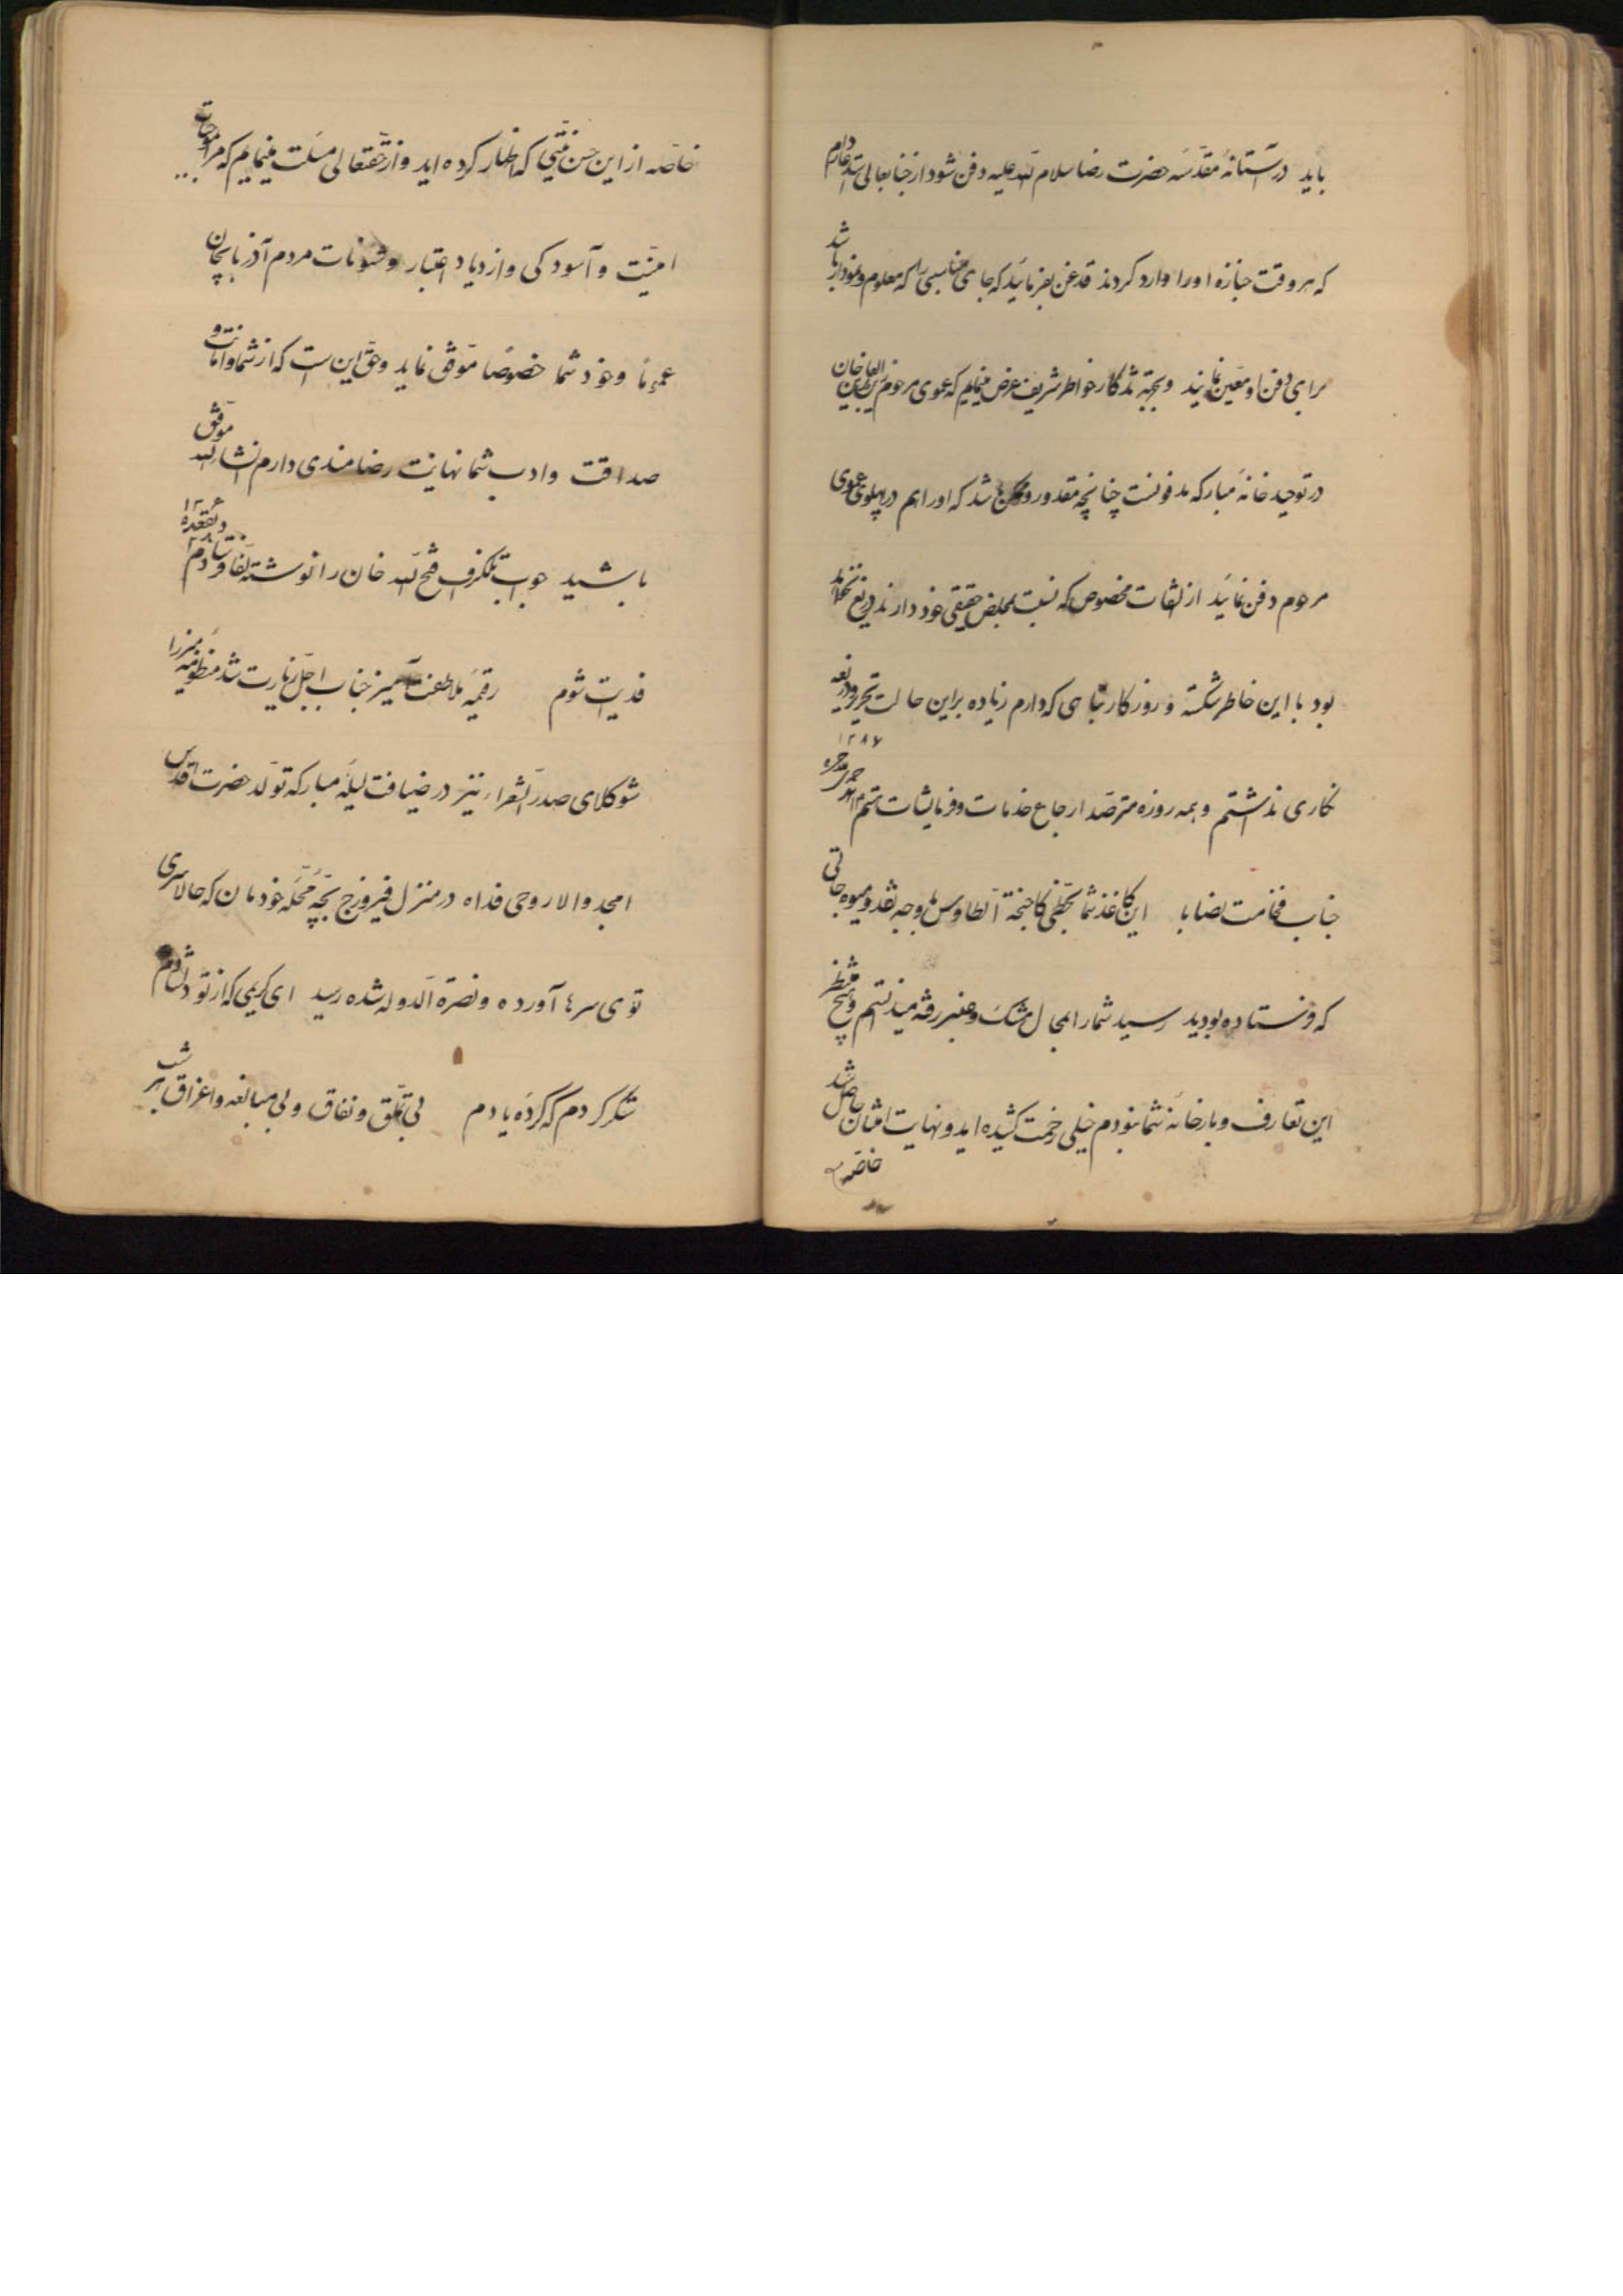 باید در آستانهٔ مقدّسه حضرت رضا سلام الله علیه دفن شود از جنابعالی استدعا دارم
که هر وقت جنازه او را وارد کردند قدغن بفرمائید که جای مناسبی را که معلوم و نمودار باشد
برای دفن او معیّن نمایند و بجهة تذکار خواطر شریف عرض مینمایم که عموی مرحوم زین العابدین خان
در توحید خانهٔ مبارکه مدفونست چنانچه مقدور و ممکن باشد که او را هم در پهلوی عموی
مرحوم دفن نمائید از التفات مخصوص که نسبت بمخلص حقیقی خود دارند دریغ نخواهد
بود با این خاطر شکسته و روزگار تباهی که دارم زیاده بر این حالت تحریر و ذریعه
نگاری نداشتم و همه روزه مترصّد ارجاع خدمات و فرمایشات هستم ۱۲۸۷
جناب فخامت نصابا این کاغذ شما بخطّی کاجنحة الطاوس با وجه نقد و میوه جاتی
که فرستاده بودید رسید شما را بمجال مشک و عنبر رفته میدانستم و هیچ منتظر
این تعارف و بارخانهٔ شما نبودم خیلی زحمت کشیده اید و نهایت امتنان حاصل شد
خاصّه
خاصّه از این حسن نیّتی که اظهار کرده اید و از حقتعالی مسئلت مینمایم که مرا
امنیّت و آسودگی و ازدیاد اعتبار و شئونات مردم آذربایجان
عموماً و خود شما خصوصاً موفّق نماید و حقّ این است که از شما و امانت و
صداقت و ادب شما نهایت رضامندی دارم انشاء الله موفّق
باشید جواب تلگراف فتح الله خان را نوشته لفّاً فرستادم
فدیت شوم رقیمهٔ ملاطفت آمیز جناب اجلّ زیارت شد منظومهٔ میرزا
شوکلای صدر الشعراء نیز در ضیافت لیلهٔ مبارکه تولّد حضرت اقدس
امجد والا روحی فداه در منزل فیروزج بچّه محلّه خودمان که حالا سری
توی سرها آورده و نصرة الدوله شده رسید ای کریمی که از تو دلشادم
شکر کردم که کردهٔ یادم بی تملّق و نفاق و بی مبالغه و اغراق هر شب